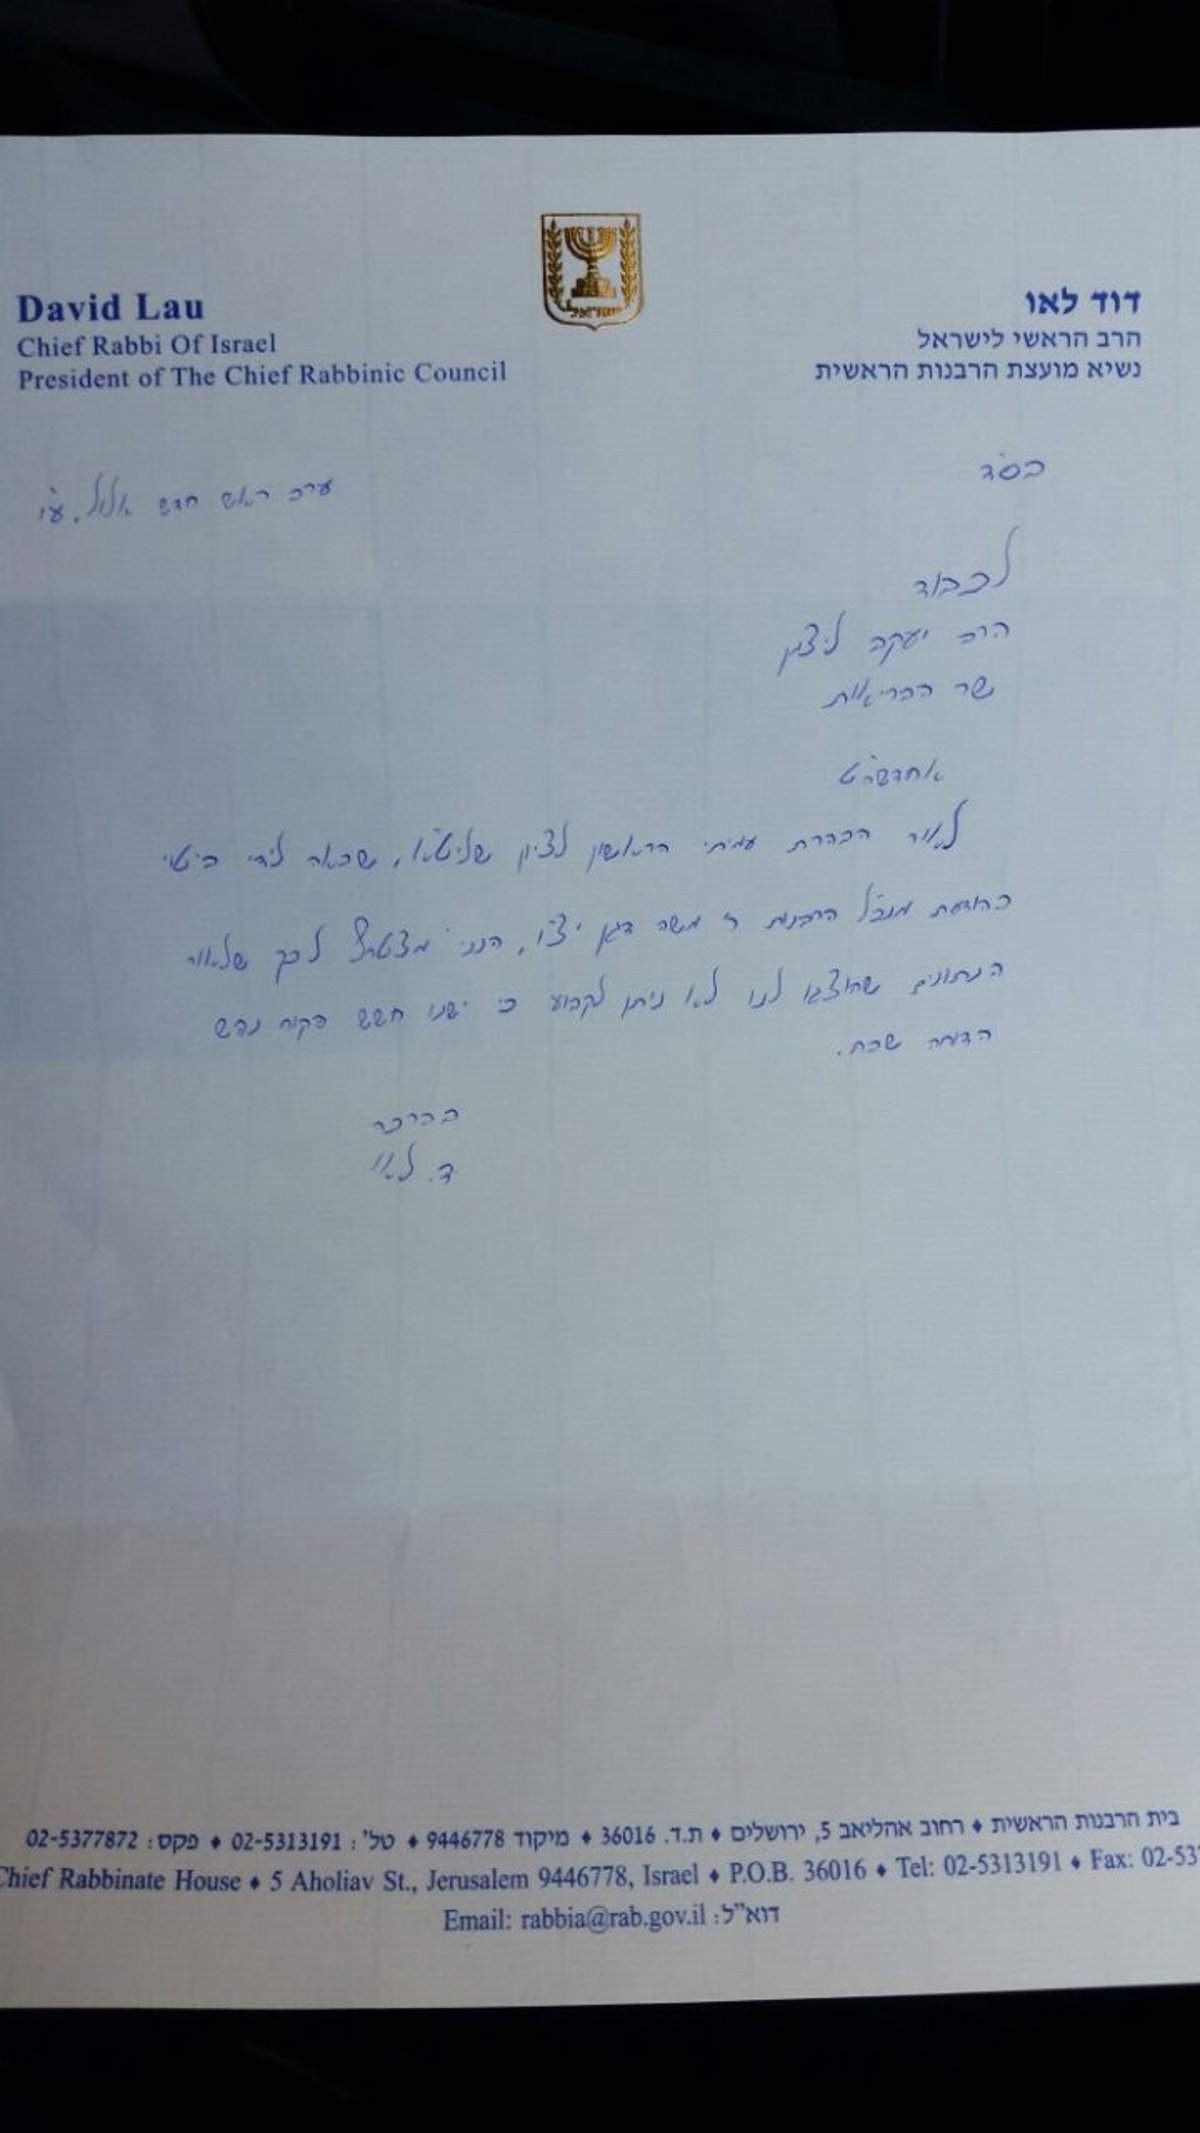 ישראל
David Lau
Chief Rabbi Of Israel
President of The Chief Rabbinic Council
דוד לאו
הרב הראשי לישראל
נשיא מועצת הרבנות הראשית
בס"ד
ערב ראש חדש אלול, ע"ו
לכבוד
הרב יעקב ליצמן
שר הבריאות
אחדשה"ט
לאור הבהרת עמיתי הראשון לציון שליט"א, שבאה לידי ביטוי
בהודעת מנכ"ל הרבנות ר' משה דגן יצ"ו, הנני מצטרף לכך שלאור
הנתונים שהוצגו לנו לא ניתן לקבוע כי ישנו חשש פקוח נפש
הדוחה שבת.
בברכה
ד. לאו
בית הרבנות הראשית ♦ רחוב אהליאב 5, ירושלים ♦ ת.ד. 36016 ♦ מיקוד 9446778 ♦ טל': 02-5313191 ♦ פקס: 02-5377872
Chief Rabbinate House ♦ 5 Aholiav St., Jerusalem 9446778, Israel ♦ P.O.B. 36016 ♦ Tel: 02-5313191 ♦ Fax: 02-537
Email: rabbia@rab.gov.il :דוא"ל